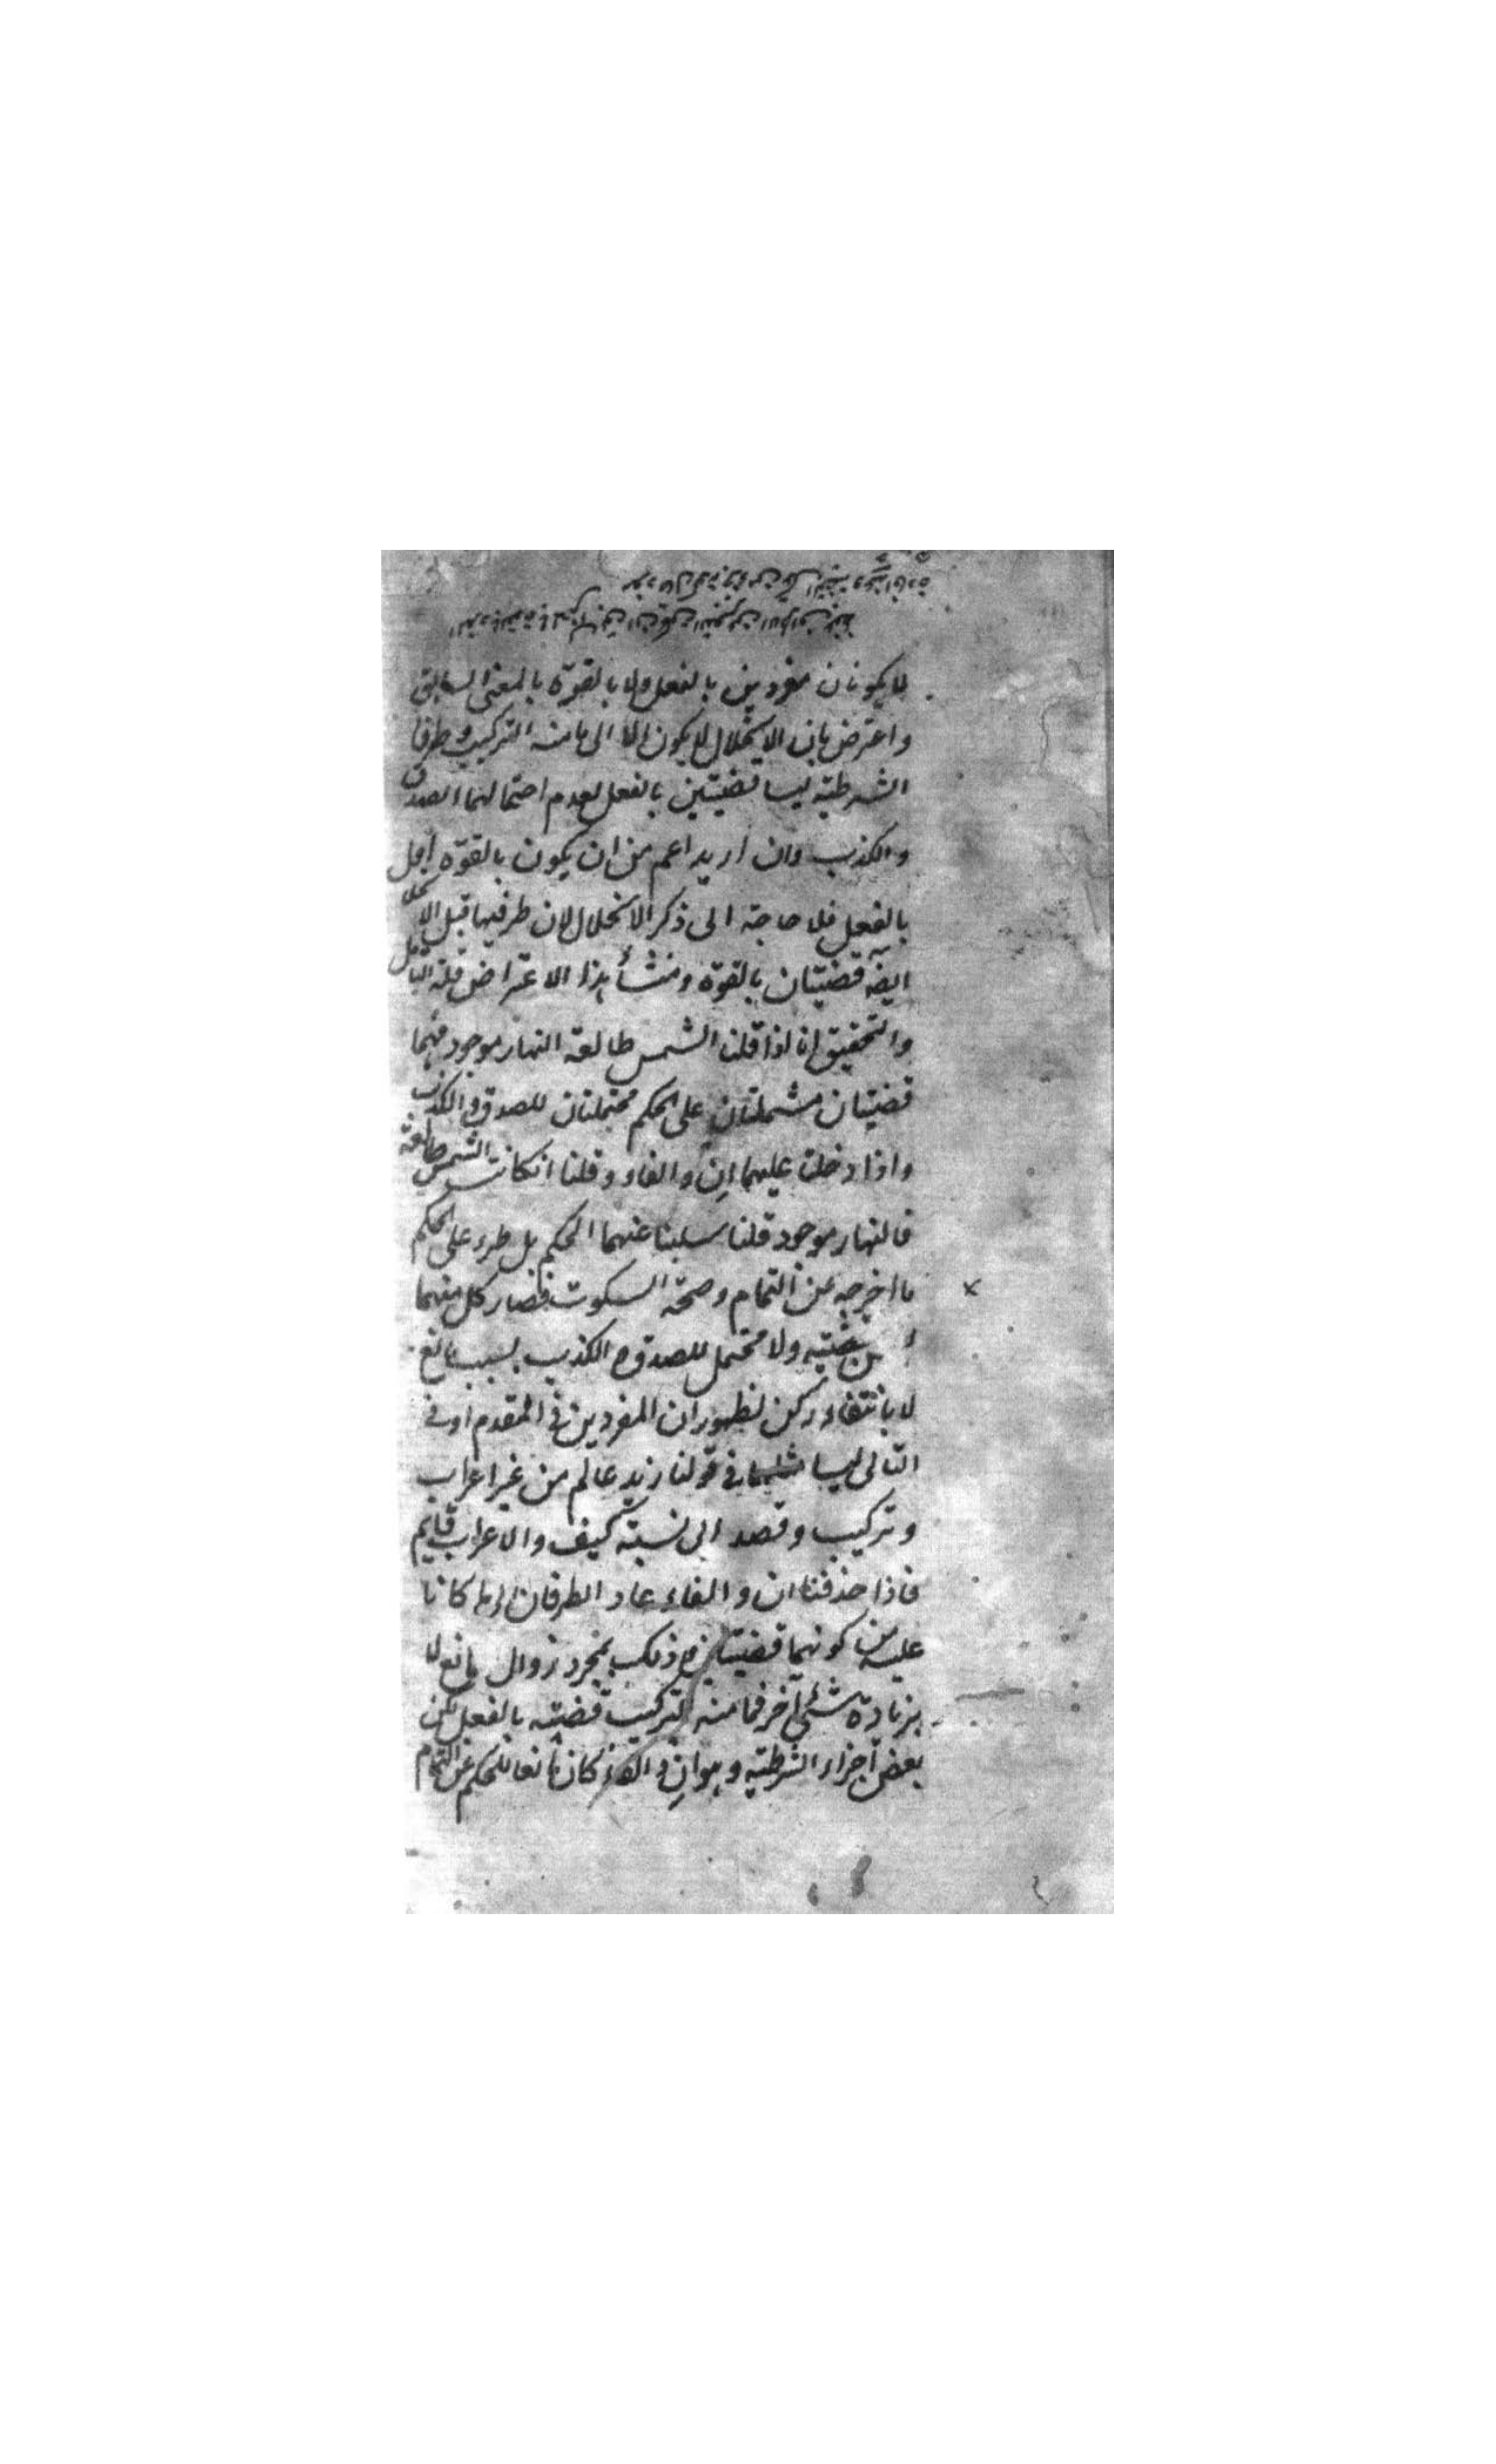 لا يكونان مفردين بالفعل ولا بالقوة بالمعنى السابق
واعترض بان الانحلال لا يكون الا الى ما منه التركيب وطرفا
الشرطية ليسا قضيتين بالفعل لعدم احتمالهما الصدق
والكذب وان اريد اعم من ان يكون بالقوة او
بالفعل فلا حاجة الى ذكر الانحلال لان طرفيها قبل الانحلال
ايضه قضيتان بالقوة ومنشأ هذا الاعتراض قلة التأمل
والتحقيق انا اذا قلنا الشمس طالعة النهار موجود فهما
قضيتان مشتملتان على الحكم محتملتان للصدق والكذب
واذا دخلت عليهما ان والفاء وقلنا انكانت الشمس طالعة
فالنهار موجود قلنا سلبنا عنهما الحكم بل طرء على الحكم
ما اخرجه عن التمام وصحة السكوت فصار كل منهما
قضية ولا محتمل للصدق والكذب بسبب مانع
لا بانتفاء ركن لظهور ان المفردين في المقدم او في
التالى ليسا مثلهما في قولنا زيد عالم من غير اعراب
وتركيب وقصد الى نسبة كيف والاعراب قايم
فاذا حذفنا ان والفاء عاد الطرفان الى ما كانا
عليه من كونهما قضيتين وذلك بمجرد زوال مانع لا
بزيادة شئ آخر فما منه التركيب قضية بالفعل لكن
بعض اجزاء الشرطية وهو ان والفاء كان مانعا للحكم عن التمام